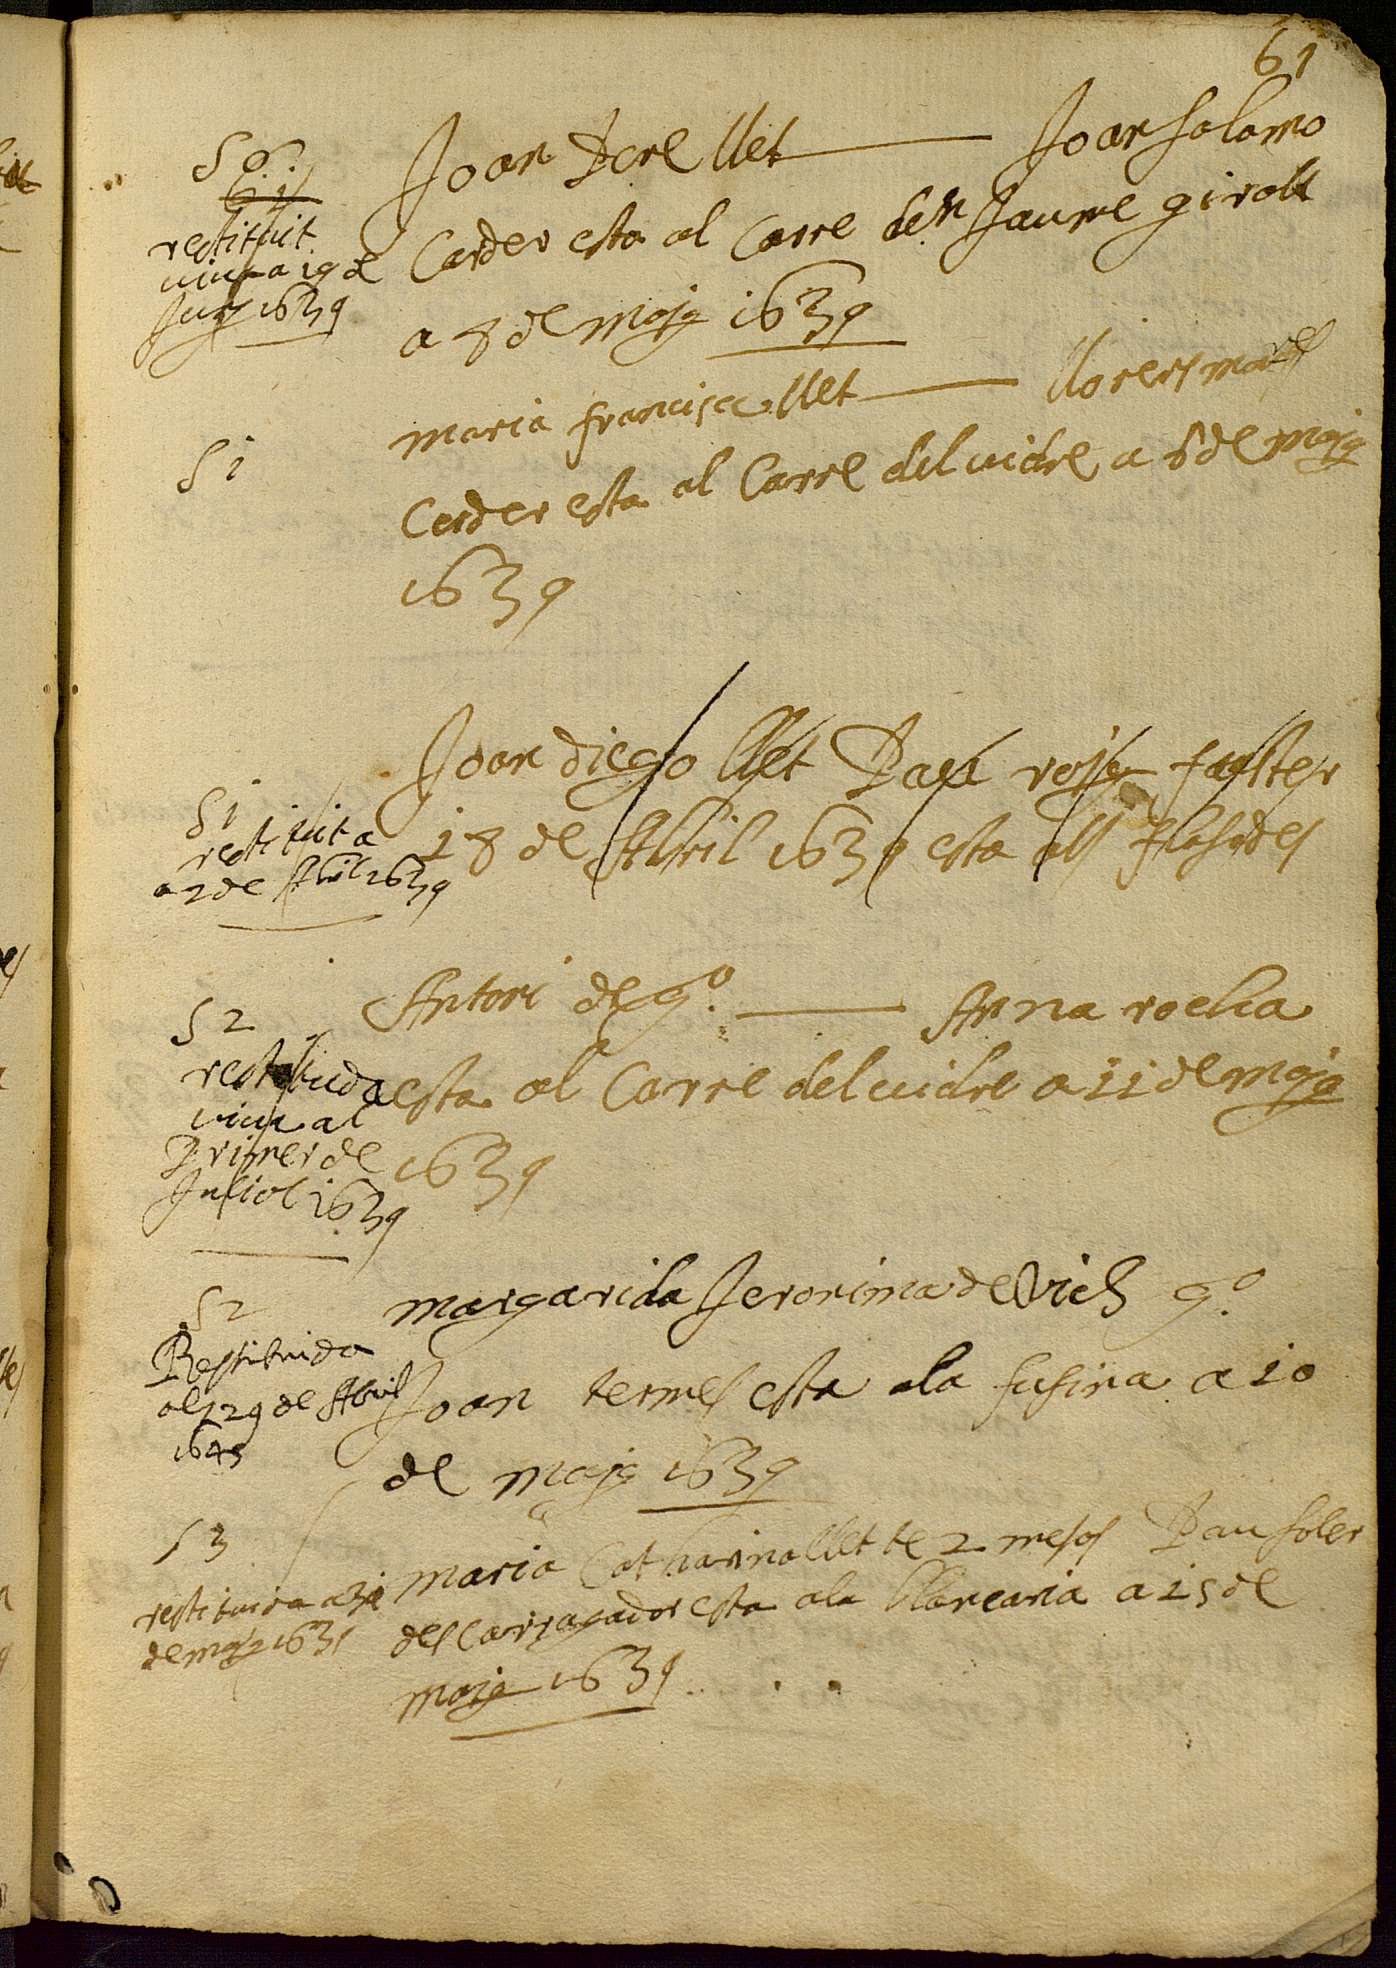 61
50.
61
restituit
viu a 19 de
Juny 1639
Joan Pere llet — Joan Salamo
Carder esta al Carre den Jaume giralt
a 8 de maig 1639
51
maria francisca llet — llorens
Carder esta al Carre del vidre a 8 de maig
1639
51
restituit a
a 2 de Abril 1639
Joan diego llet Pau roig fuster
18 de Abril 1639 esta als flasades
52
restituida
viu al
Primer de
Juliol 1639
Antoni de gº. — Anna rocha
esta al Carre del vidre a 11 de maig
1639
52
Restituida
als 29 de Abril
1645
margarida Jeronima de Vich gº.
Joan termes esta a la fusina a 10
de maig 1639
53
restituida a 31
de maig 1639
maria Catharina llet te 2 mesos Pau Soler
descarragador esta a la blancaria a 15 de
maig 1639